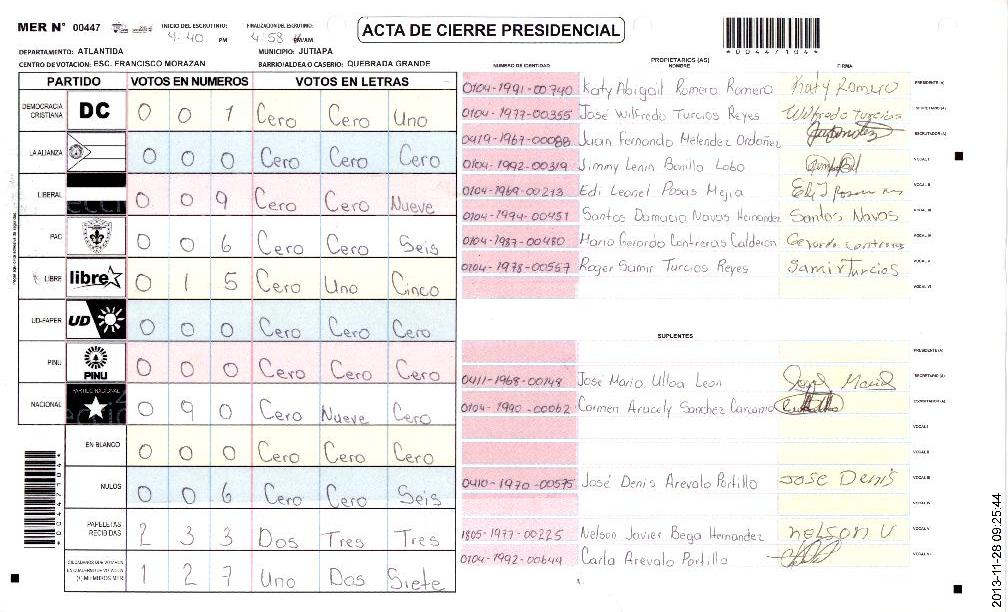 MER N° 00447
INICIO DEL ESCRUTINIO: 4:40 PM
FINALIZACION DEL ESCRUTINIO: 4:58 PM/AM
ACTA DE CIERRE PRESIDENCIAL
*00447104*
DEPARTAMENTO: ATLANTIDA
MUNICIPIO: JUTIAPA
CENTRO DE VOTACION: ESC. FRANCISCO MORAZAN
BARRIO/ALDEA O CASERIO: QUEBRADA GRANDE
PARTIDO VOTOS EN NUMEROS VOTOS EN LETRAS
DEMOCRACIA CRISTIANA DC 0 0 1 Cero Cero Uno
LA ALIANZA 0 0 0 Cero Cero Cero
LIBERAL 0 0 9 Cero Cero Nueve
PAC 0 0 6 Cero Cero Seis
LIBRE libre 0 1 5 Cero Uno Cinco
UD-FAPER UD 0 0 0 Cero Cero Cero
PINU PINU 0 0 0 Cero Cero Cero
NACIONAL PARTIDO NACIONAL 0 9 0 Cero Nueve Cero
EN BLANCO 0 0 0 Cero Cero Cero
NULOS 0 0 6 Cero Cero Seis
PAPELETAS RECIBIDAS 2 3 3 Dos Tres Tres
CIUDADANOS QUE VOTARON 1 2 7 Uno Dos Siete
(+) MIEMBROS MER
*00447104*
PROPIETARIOS (AS)
NUMERO DE IDENTIDAD NOMBRE FIRMA
0104-1991-00740 Katy Abigail Romero Romero Katy Romero PRESIDENTE (A)
0104-1977-00355 José Wilfredo Turcios Reyes Wilfredo Turcios SECRETARIO (A)
0419-1967-00088 Juan Fernando Melendez Ordoñez ESCRUTADOR (A)
0104-1992-00319 Jimmy Lenin Bonilla Lobo VOCAL I
0104-1969-00213 Edi Leonel Posas Mejia VOCAL II
0104-1994-00451 Santos Damacio Navas Hernandez Santos Navas VOCAL III
0104-1987-00480 Mario Gerardo Contreras Calderon Gerardo Contreras VOCAL IV
0104-1978-00557 Roger Samir Turcios Reyes Samir Turcios VOCAL V
VOCAL VI
SUPLENTES
PRESIDENTE (A)
0411-1968-00148 José Mario Ulloa Leon SECRETARIO (A)
0104-1990-00062 Carmen Aracely Sanchez Carcamo ESCRUTADOR (A)
VOCAL I
VOCAL II
0410-1970-00575 José Denis Arevalo Portillo Jose Denis VOCAL III
VOCAL IV
1805-1977-00225 Nelson Javier Bega Hernandez nelson V VOCAL V
0104-1992-00644 Carla Arevalo Portillo VOCAL VI
2013-11-28 09:25:44